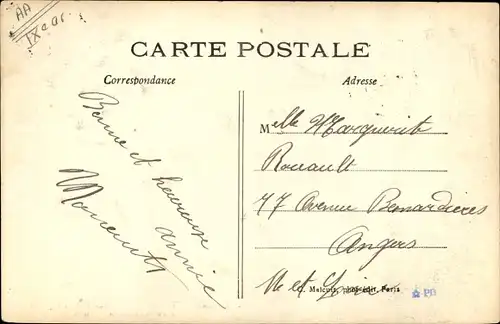 AA
CARTE POSTALE
Correspondance
Adresse
Bonne et heureuse
année
Melle Marguerite
Rouault
77 Avenue Bernardières
Angers
M et Loire
C. Malcuit, phot-édit, Paris
PD